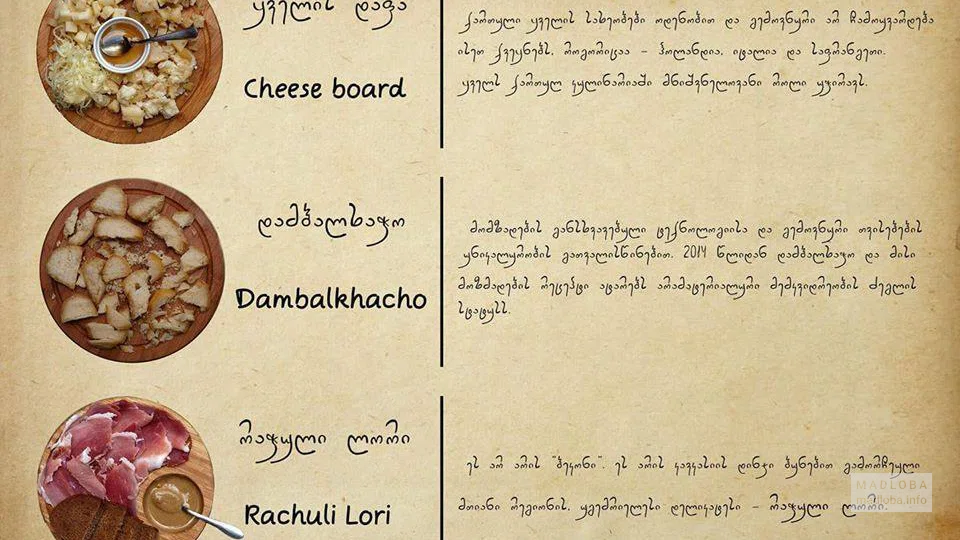 ყველის დაფა
Cheese board
ქართული ყველის სახეობები ოდენობით და გემოვნური არ ჩამოუვარდება
ისეთ ქვეყნებს, როგორიცაა - ჰოლანდია, იტალია და საფრანგეთი.
ყველს ქართულ კულინარიაში მნიშვნელოვანი როლი უჭირავს.
დამბალხაჭო
Dambalkhacho
მომზადების განსხვავებული ტექნოლოგიისა და გემოვნური თვისებების
უნიკალურობის გათვალისწინებით. 2014 წლიდან დამბალხაჭო და მისი
მოზმადების რეცეპტი ატარებს არამატერიალური მემკვიდრეობის ძეგლის
სტატუსს.
რაჭული ლორი
Rachuli Lori
ეს არ არის "ბეკონი". ეს არის კავკასიის დინჯი ბუნებით გამორჩეული
მთიანი რეგიონის, უგემრიელესი დელიკატესი - რაჭული ლორი.
MADLOBA
madloba.info